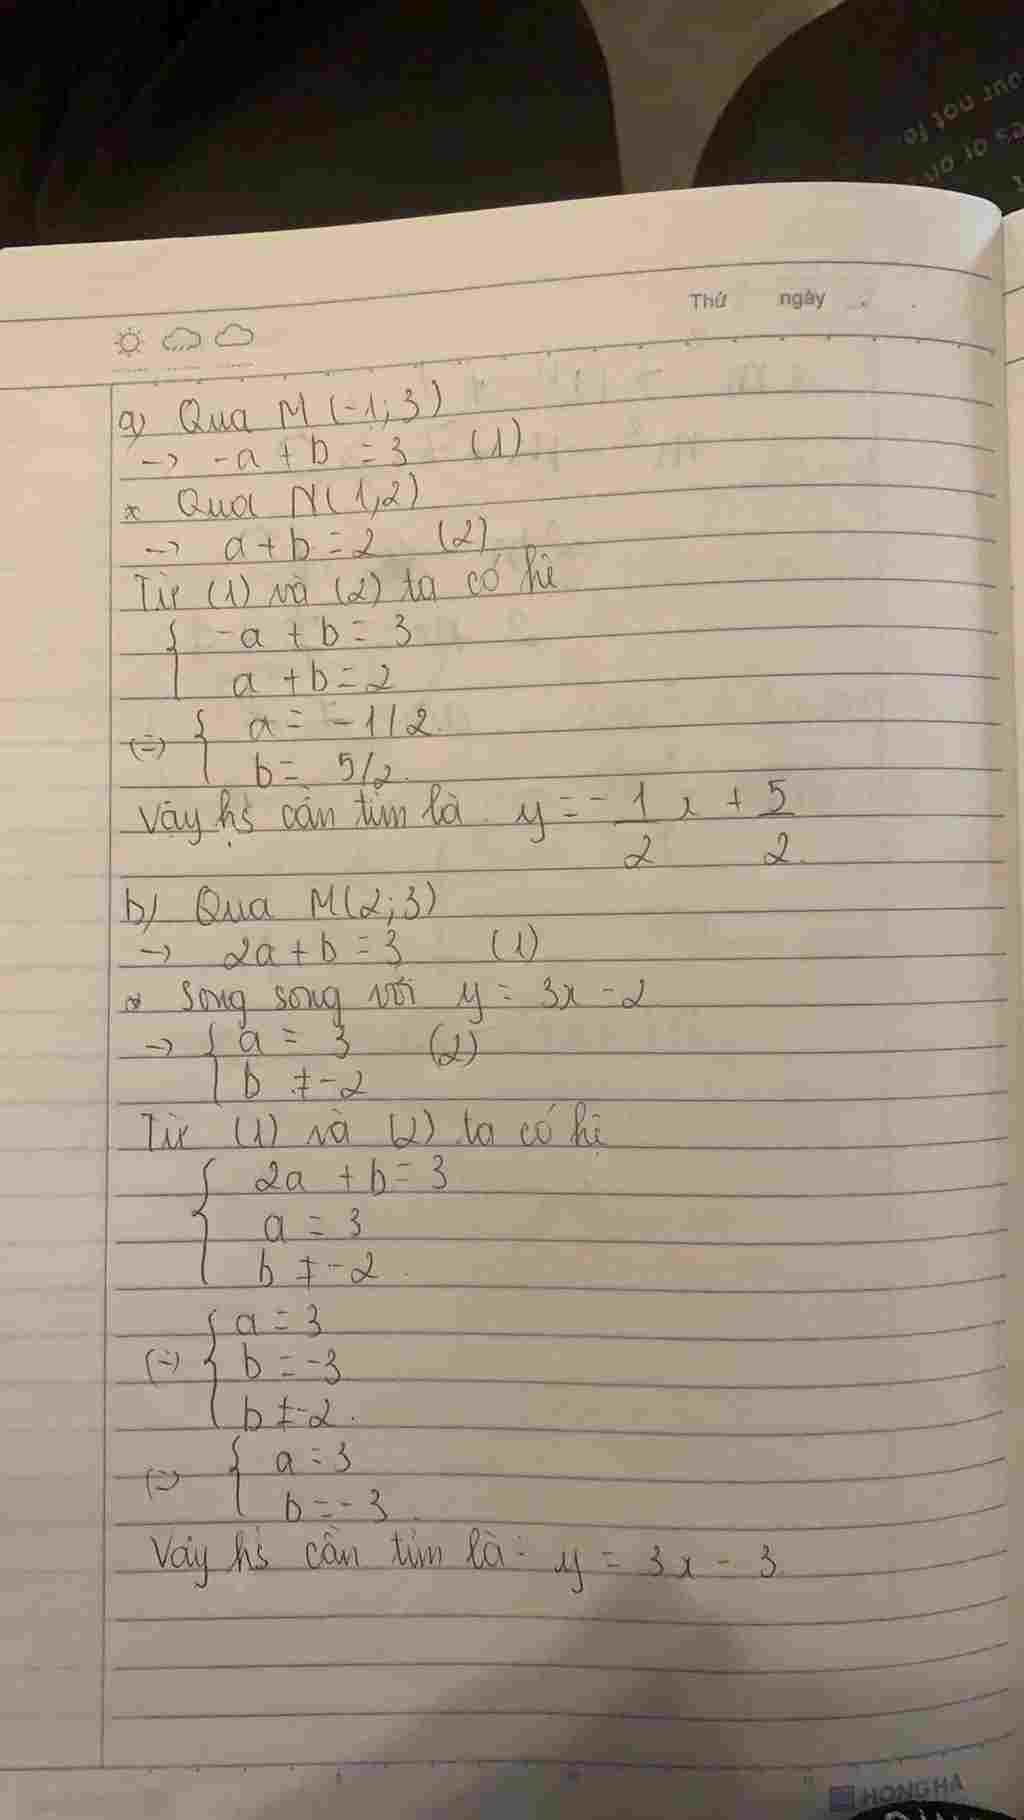 our not fo
es or on
Thứ ngày
a) Qua M (-1; 3)
-> -a + b = 3 (1)
* Qua N(1,2)
-> a + b = 2 (2)
Từ (1) và (2) ta có hệ
{ -a + b = 3
a + b = 2
(=) { a = -1/2.
b = 5/2.
Vậy hs cần tìm là y = - 1/2 x + 5/2.
b) Qua M(2; 3)
-> 2a + b = 3 (1)
* Song song với y = 3x - 2
-> { a = 3 (2)
b ≠ -2
Từ (1) và (2) ta có hệ
{ 2a + b = 3
a = 3
b ≠ -2.
(=) { a = 3
b = -3
b ≠ -2.
(=) { a = 3
b = -3.
Vậy hs cần tìm là: y = 3x - 3
HONG HA